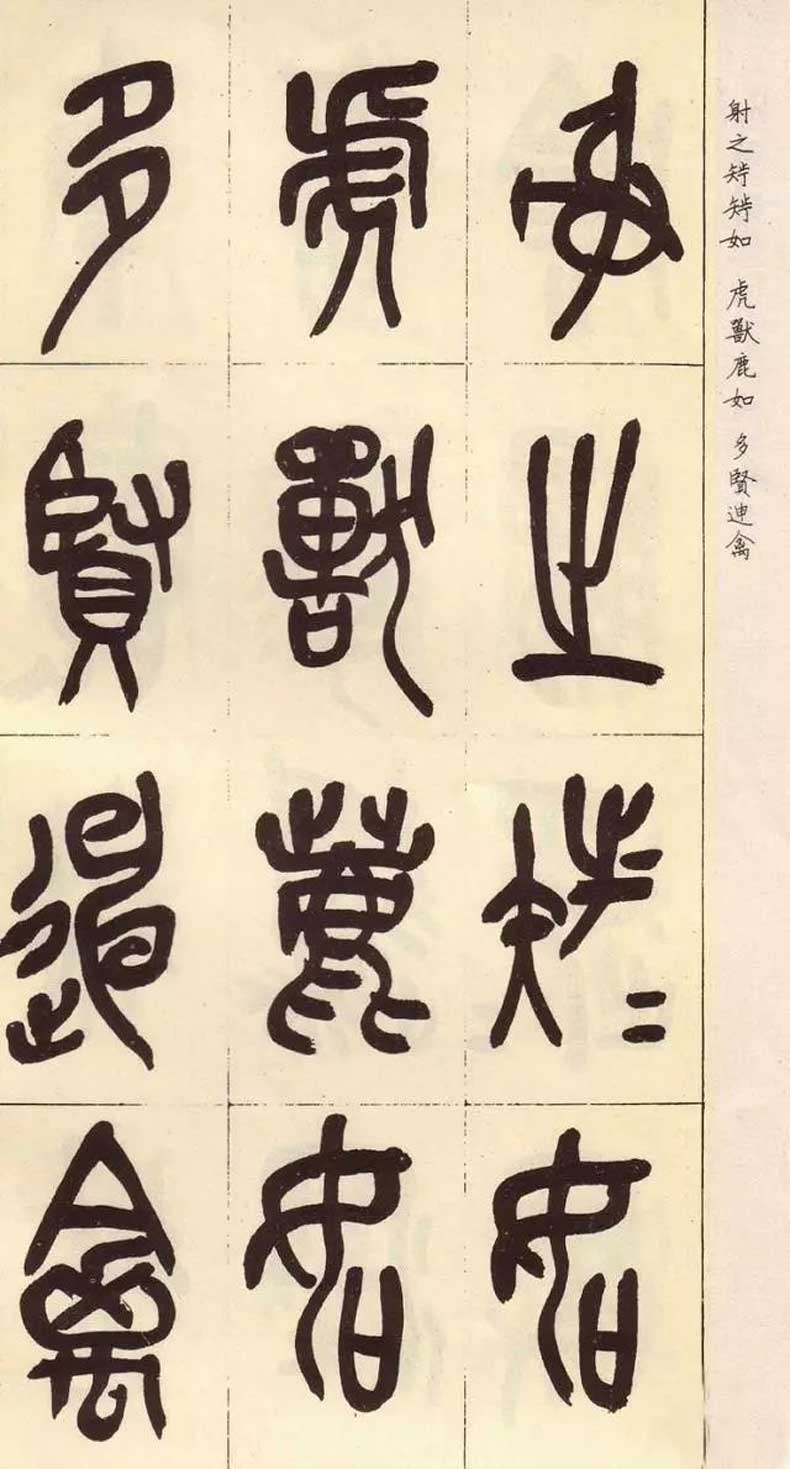 射之如 虎獸鹿如 多賢迧禽
射之如
虎獸鹿如
多賢迧禽